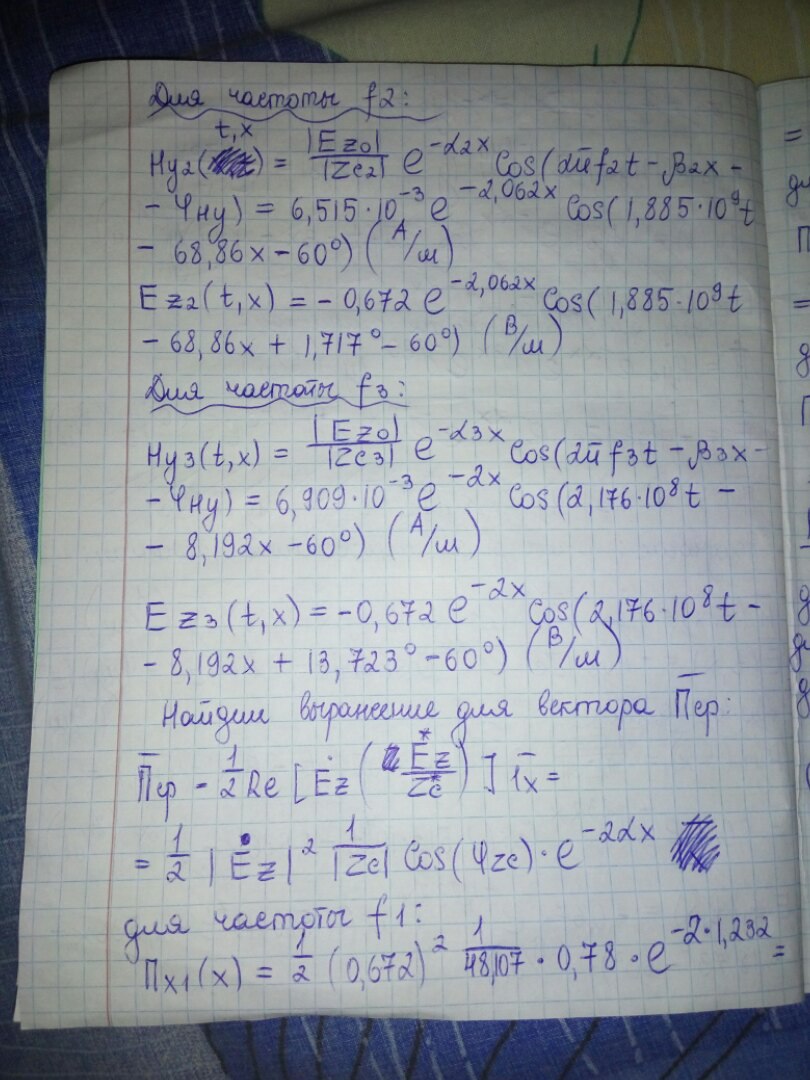 Для частоты f2:
t,x
Hy2( ) = |Ez0|/|Zc2| e^-α2x Cos(2πf2t - β2x -
- φHy) = 6,515·10^-3 e^-2,062x Cos(1,885·10^9t
- 68,86x - 60°) (А/м)
Ez2(t,x) = - 0,672 e^-2,062x Cos(1,885·10^9t
- 68,86x + 1,717° - 60°) (В/м)
Для частоты f3:
Hy3(t,x) = |Ez0|/|Zc3| e^-α3x Cos(2πf3t - β3x -
- φHy) = 6,909·10^-3 e^-2x Cos(2,176·10^8t -
- 8,192x - 60°) (А/м)
Ez3(t,x) = -0,672 e^-2x Cos(2,176·10^8t -
- 8,192x + 13,723° - 60°) (В/м)
Найдём выражение для вектора П̅ср:
П̅ср = 1/2 Re [Ėz (Ėz*/Zc*)] 1̅x =
= 1/2 |Ėz|^2 1/|Zc| Cos(φzc)·e^-2αx
для частоты f1:
Пx1(x) = 1/2 (0,672)^2 1/48,107 · 0,78 · e^-2·1,232 =